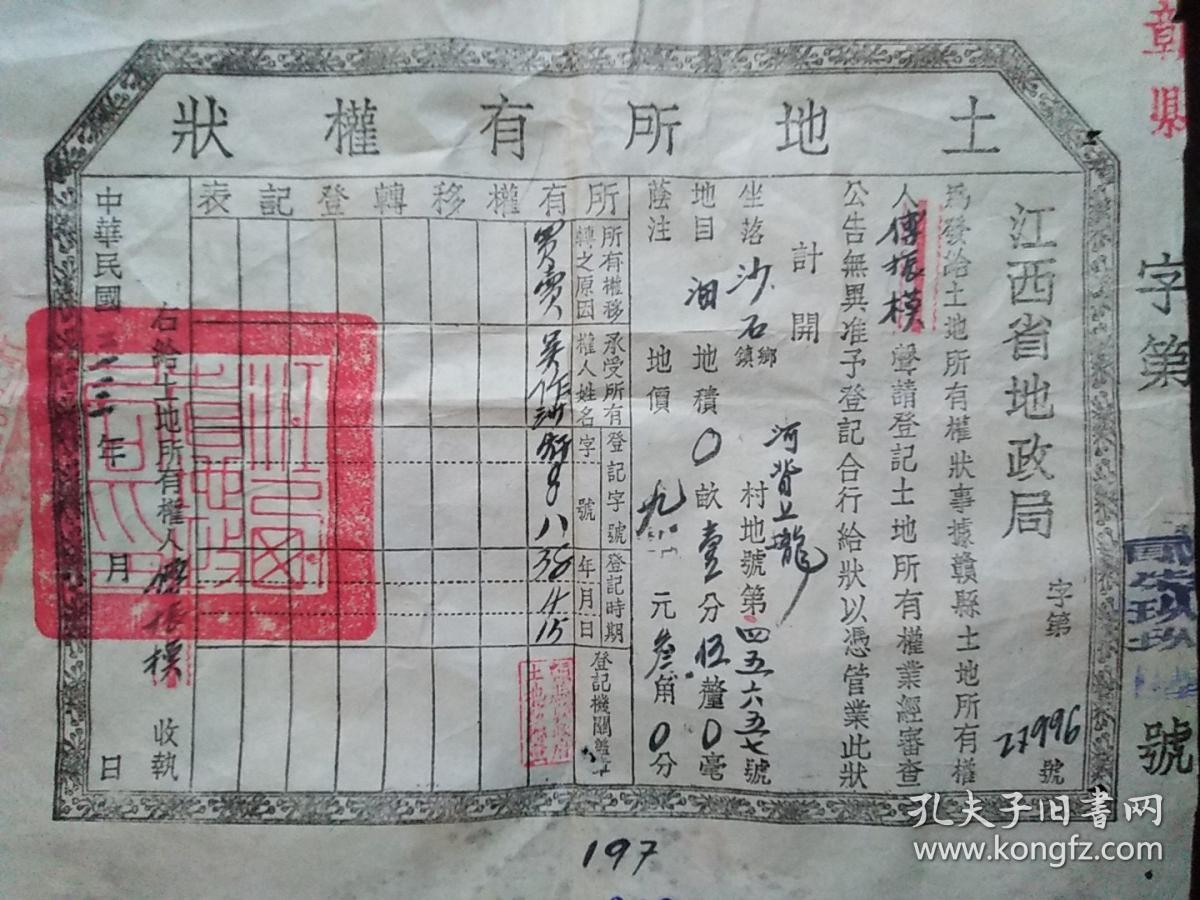 土地所有權狀
江西省地政局
字第27996號
為發給土地所有權狀事據贛縣土地所有權
人傅振模聲請登記土地所有權業經審查
公告無異准予登記合行給狀以憑管業此狀
計開
坐落沙石鄉鎮河背上壠村地號第四五六五七號
地目 地積0畝壹分伍釐0毫
蔭注 地價九元叁角0分
所有權移轉登記表
所有權移轉之原因
承受所有權人姓名
登記字號
字號
登記時期
年月日
登記機關蓋章
買賣
吳作
八
38
4
15
右給土地所有權人傅振模 收執
中華民國三十三年 月 日
縣
字第
貳柒玖玖陸
號
197
孔夫子旧书网
www.kongfz.com